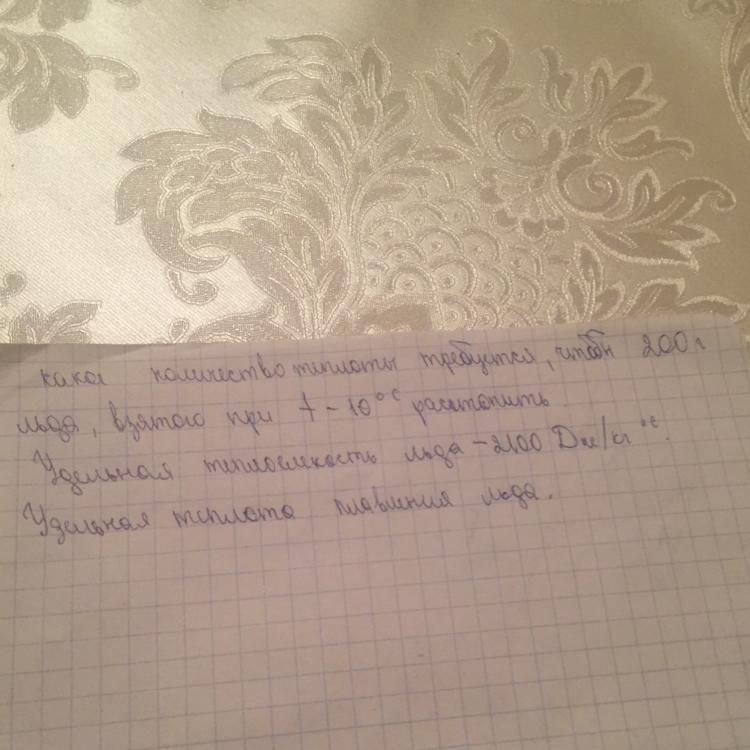 какое количество теплоты требуется, чтобы 200 г
льда, взятого при t - 10°C растопить.
Удельная теплоемкость льда - 2100 Дж/кг °C.
Удельная теплота плавления льда.